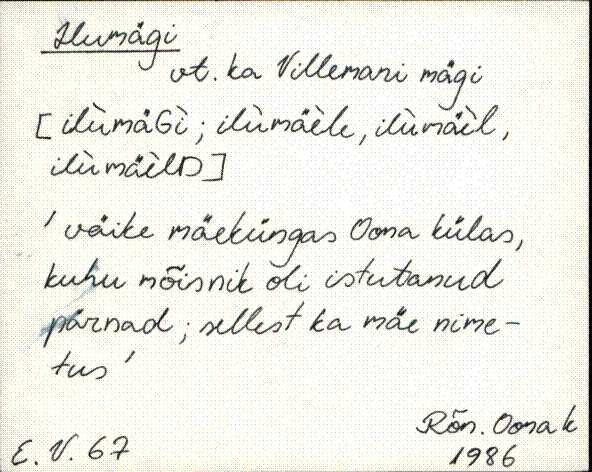 Ilumägi
vt. ka Villemari mägi
[ilùmäGì; ilùmäèle, ilùmäèl,
ilùmäèlD]
'väike mäeküngas Oona külas,
kuhu mõisnik oli istutanud
pärnad; sellest ka mäe nime-
tus'
Rõn. Oona k
E. V. 67
1986